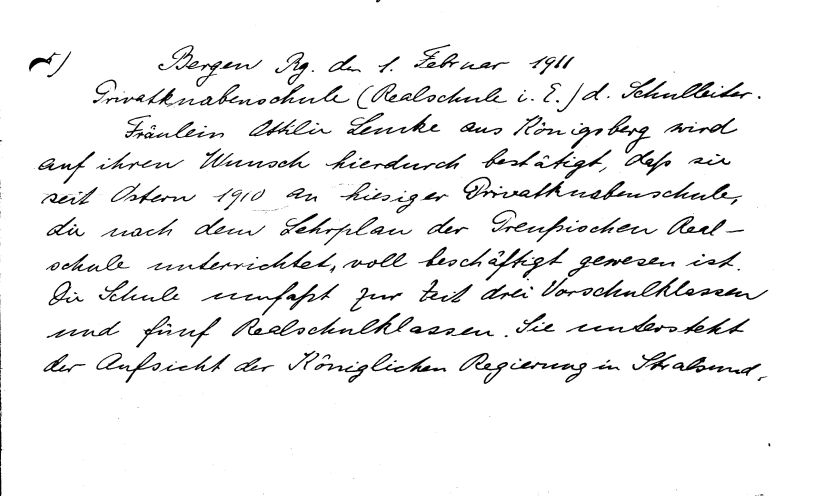 5) Bergen Rg. den 1. Februar 1911
Privatknabenschule (Realschule i. E.) d. Schulleiter.
Fräulein Ottilie Lemke aus Königsberg wird
auf ihren Wunsch hierdurch bestätigt, daß sie
seit Ostern 1910 an hiesiger Privatknabenschule,
die nach dem Lehrplan der Preußischen Real-
schule unterrichtet, voll beschäftigt gewesen ist.
Die Schule umfaßt zur Zeit drei Vorschulklassen
und fünf Realschulklassen. Sie untersteht
der Aufsicht der Königlichen Regierung in Stralsund.